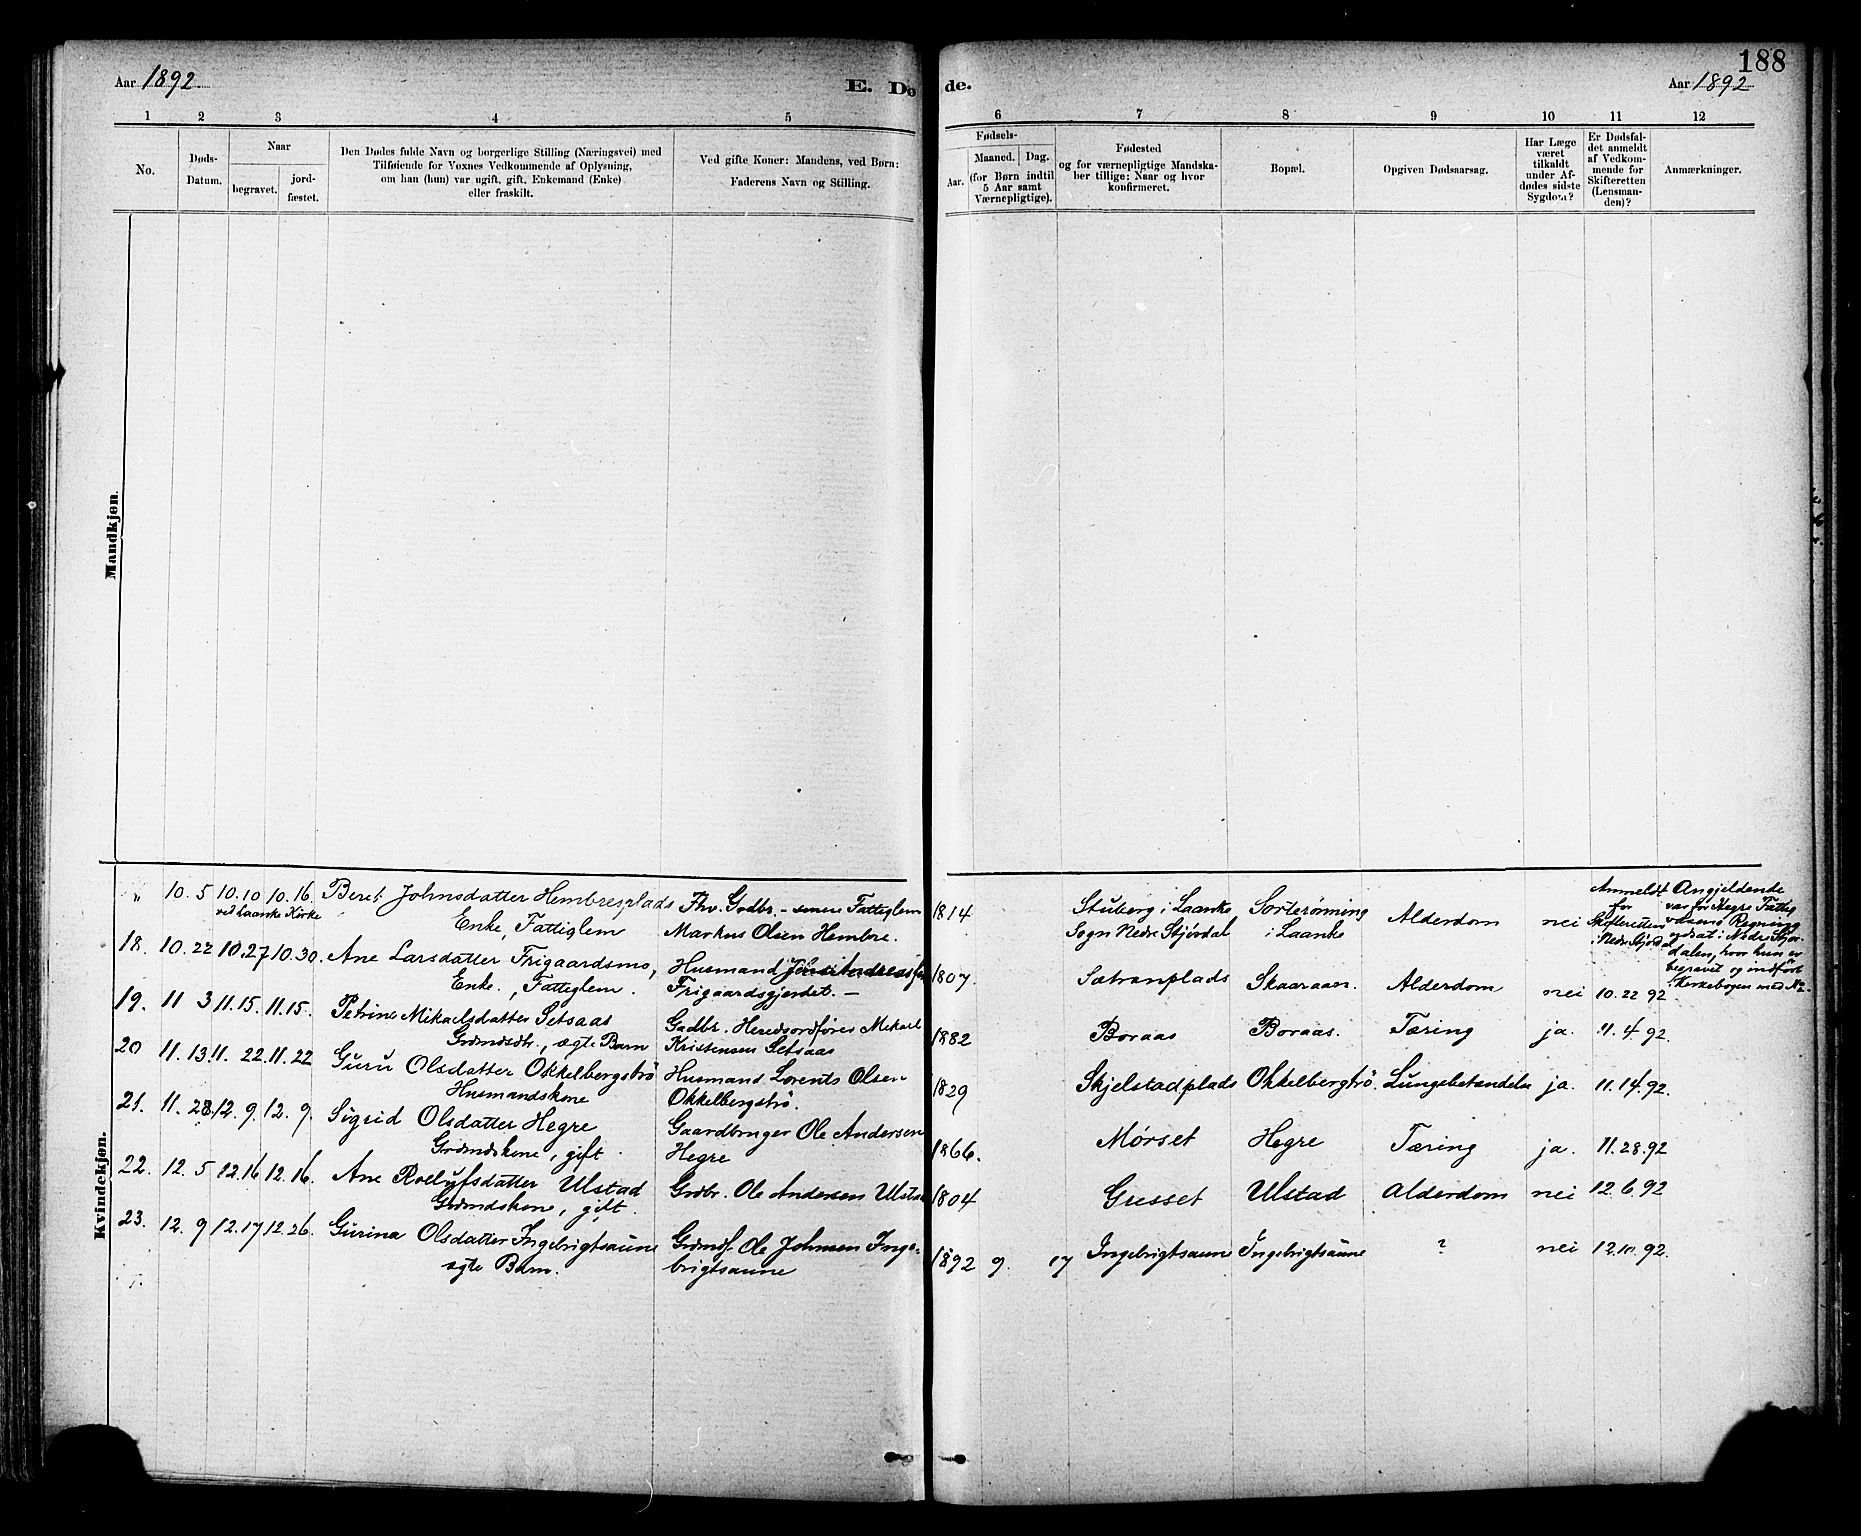 188
Aar 1892
E. Døde.
Aar 1892
1 2 3 4 5 6 7 8 9 10 11 12
No.
Døds-
Datum.
Naar
begravet.
jord-
fæstet.
Den Dødes fulde Navn og borgerlige Stilling (Næringsvei) med
Tilføiende for Voxnes Vedkommende af Oplysning,
om han (hun) var ugift, gift, Enkemand (Enke)
eller fraskilt.
Ved gifte Koner: Mandens, ved Børn:
Faderens Navn og Stilling.
Fødsels-
Aar.
Maaned. Dag.
(for Børn indtil
5 Aar samt
Værnepligtige).
Fødested
og for værnepligtige Mandska-
ber tillige: Naar og hvor
konfirmeret.
Bopæl.
Opgiven Dødsaarsag.
Har Læge
været
tilkaldt
under Af-
dødes sidste
Sygdom?
Er Dødsfal-
det anmeldt
af Vedkom-
mende for
Skifteretten
(Lensman-
den)?
Anmærkninger.
Mandkjøn.
Kvindekjøn.
" 10. 5 10. 10 10. 16. Beret Johnsdatter Hembresplads Fhv. Gadbr. - senere Fattiglem 1814 Stuberg i Laanke Sorterønning Alderdom nei Anmeldt
ved Laanke Kirke
Enke, Fattiglem Markus Olsen Hembre. Sogn Nedre Stjørdal i Laanke
for
Skifteretten
i Nedre Stjørdal
Angjeldende
var for Hegre Fattig
væsens Regning
udsat i Nedre Stjør
dalen, hvor hun er
begravet og indført
i Kirkebogen med No.
18. 10. 22 10. 27 10. 30. Ane Larsdatter Frigaardsmo, Husmand 1807. Skaaraan. Alderdom nei 10. 22 92
Enke., Fattiglem. Frigaardsgjerdet. —
19. 11 3 11. 15. 11. 15. Petrine Mikaelsdatter Setsaas Gadbr. Mikael 1882 Boraas Boraas. Tæring ja. 11. 4 92.
ægte Barn Kristensen Setsaas
20 11. 13. 11. 22 11. 22 Guru Olsdatter Okkelbergstrø Husmand Lorents Olsen 1829 Skjelstadplads Okkelbergtrø. Lungebetændelse ja. 11. 14 92.
Husmandskone Okkelbergstrø.
21. 11. 28. 12. 9. 12. 9. Sigrid Olsdatter Hegre Gaardbruger Ole Andersen 1866. Mørset Hegre Tæring ja. 11. 28. 92
Grdmdskone, gift. Hegre
22. 12. 5 12. 16 12. 16. Ane Roelufsdatter Ulstad Grdbr. Ole Andersen Ulstad 1804 Gresset Ulstad Alderdom nei 12. 6. 92
Grdmdskone, gift.
23. 12. 9 12. 17 12. 26. Gurina Olsdatter Ingebrigtsaune Grdmd. Ole Johnsen Inge- 1892 9. 17 Ingebrigtsaune Ingebrigtsaune ? nei 12. 10. 92.
ægte Barn. brigtsaune